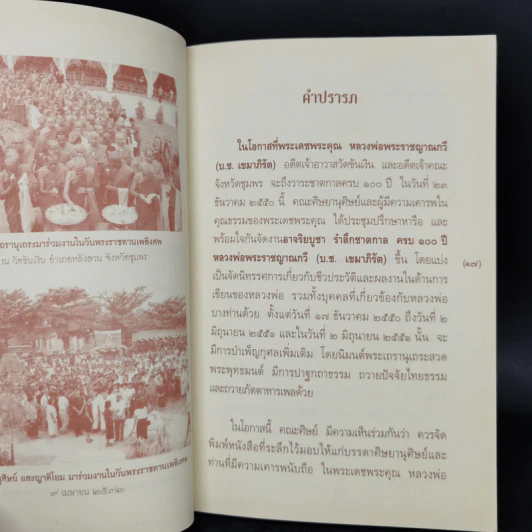 เถรานุเถระมาร่วมงานในวันพระราชทานเพลิงศพ
ณ วัดขันเงิน อำเภอหลังสวน จังหวัดชุมพร
ศิษย์ และญาติโยม มาร่วมงานในวันพระราชทานเพลิงศพ
๙ เมษายน ๒๕๓๒
คำปรารภ
ในโอกาสที่พระเดชพระคุณ หลวงพ่อพระราชญาณกวี
(บ.ช. เขมาภิรัต) อดีตเจ้าอาวาสวัดขันเงิน และอดีตเจ้าคณะ
จังหวัดชุมพร จะถึงวาระชาตกาลครบ ๑๐๐ ปี ในวันที่ ๒๓
ธันวาคม ๒๕๕๐ นี้ คณะศิษยานุศิษย์และผู้มีความเคารพใน
คุณธรรมของพระเดชพระคุณ ได้ประชุมปรึกษาหารือ และ
พร้อมใจกันจัดงานอาจริยบูชา รำลึกชาตกาล ครบ ๑๐๐ ปี
หลวงพ่อพระราชญาณกวี (บ.ช. เขมาภิรัต) ขึ้น โดยแบ่ง
เป็นจัดนิทรรศการเกี่ยวกับชีวประวัติและผลงานในด้านการ
เขียนของหลวงพ่อ รวมทั้งบุคคลที่เกี่ยวข้องกับหลวงพ่อ
บางท่านด้วย ตั้งแต่วันที่ ๑๗ ธันวาคม ๒๕๕๐ ถึงวันที่ ๒
มิถุนายน ๒๕๕๑ และในวันที่ ๒ มิถุนายน ๒๕๕๑ นั้น จะ
มีการบำเพ็ญกุศลเพิ่มเติม โดยนิมนต์พระเถรานุเถระสวด
พระพุทธมนต์ มีการปาฐกถาธรรม ถวายปัจจัยไทยธรรม
และถวายภัตตาหารเพลด้วย
ในโอกาสนี้ คณะศิษย์ มีความเห็นร่วมกันว่า ควรจัด
พิมพ์หนังสือที่ระลึกไว้มอบให้แก่บรรดาศิษยานุศิษย์และ
ท่านที่มีความเคารพนับถือ ในพระเดชพระคุณ หลวงพ่อ
(๑๗)